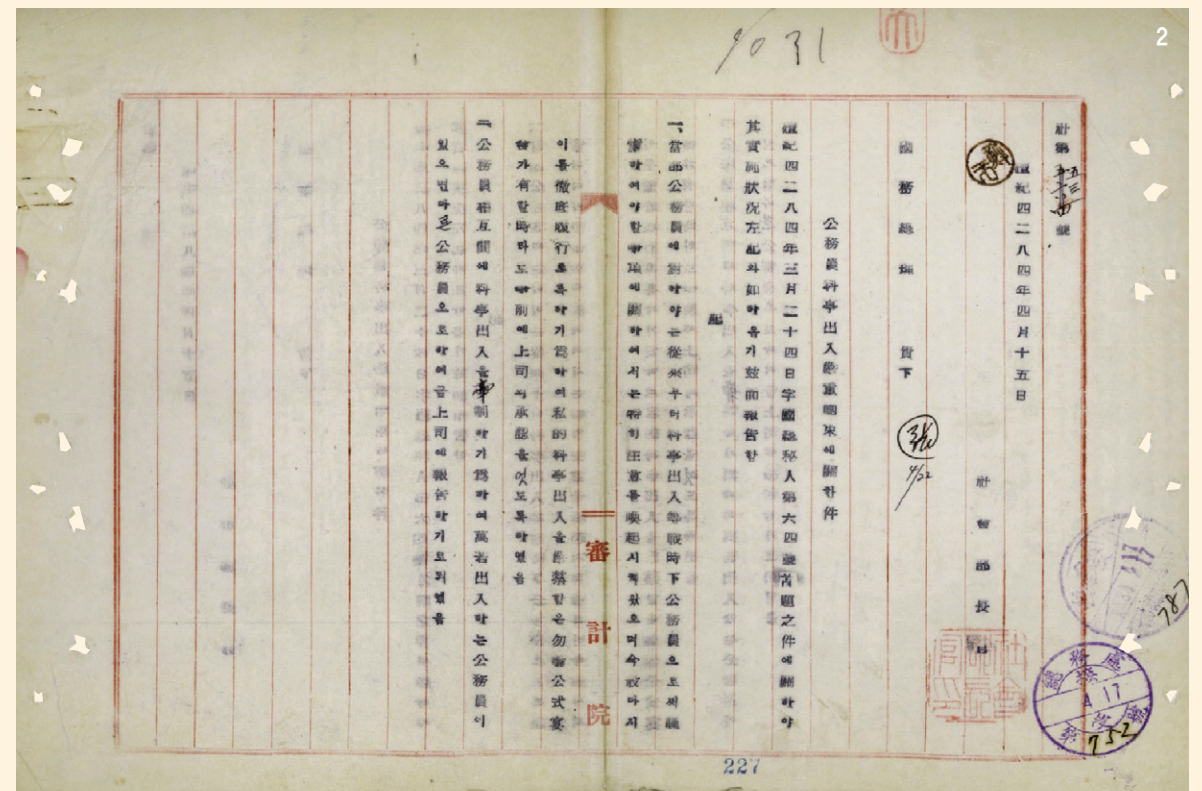 2
4031
社第五三號
檀紀四二八四年四月十五日
社會部長
國務總理 貴下
4/22
公務員料亭出入嚴重團束에關한件
檀紀四二八四年三月二十四日字國總秘人第六四號首題之件에關하야
其實施狀況左記와如하옵기玆而報告함
記
一、當部公務員에對하야는從來부터料亭出入等戰時下公務員으로써謹
愼하여야할事項에關하여서는特히注意를喚起시켜왔으며今般다시
이를徹底履行토록하기爲하여私的料亭出入을嚴禁함은勿論公式宴
會가有할時라도事前에上司의承認을엇도록하였음
二、公務員相互間에料亭出入을牽制하기爲하여萬若出入하는公務員이
있으면다른公務員으로하여금上司에報告하기로되였음
審計院
總務處
4 17
接受
第752
4 17
787
227